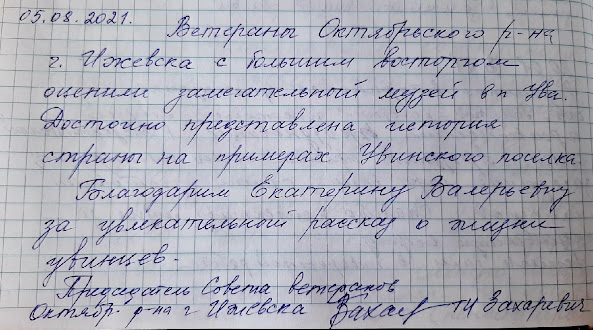 05.08.2021.
Ветераны Октябрьского р-на
г. Ижевска с большим восторгом
оценили замечательный музей в п Ува.
Достойно представлена история
страны на примерах Увинского поселка
Благодарим Екатерину Валерьевну
за увлекательный рассказ о жизни
увинцев.
Председатель Совета ветеранов
Октябр. р-на г Ижевска Захар ТИ Захаревич